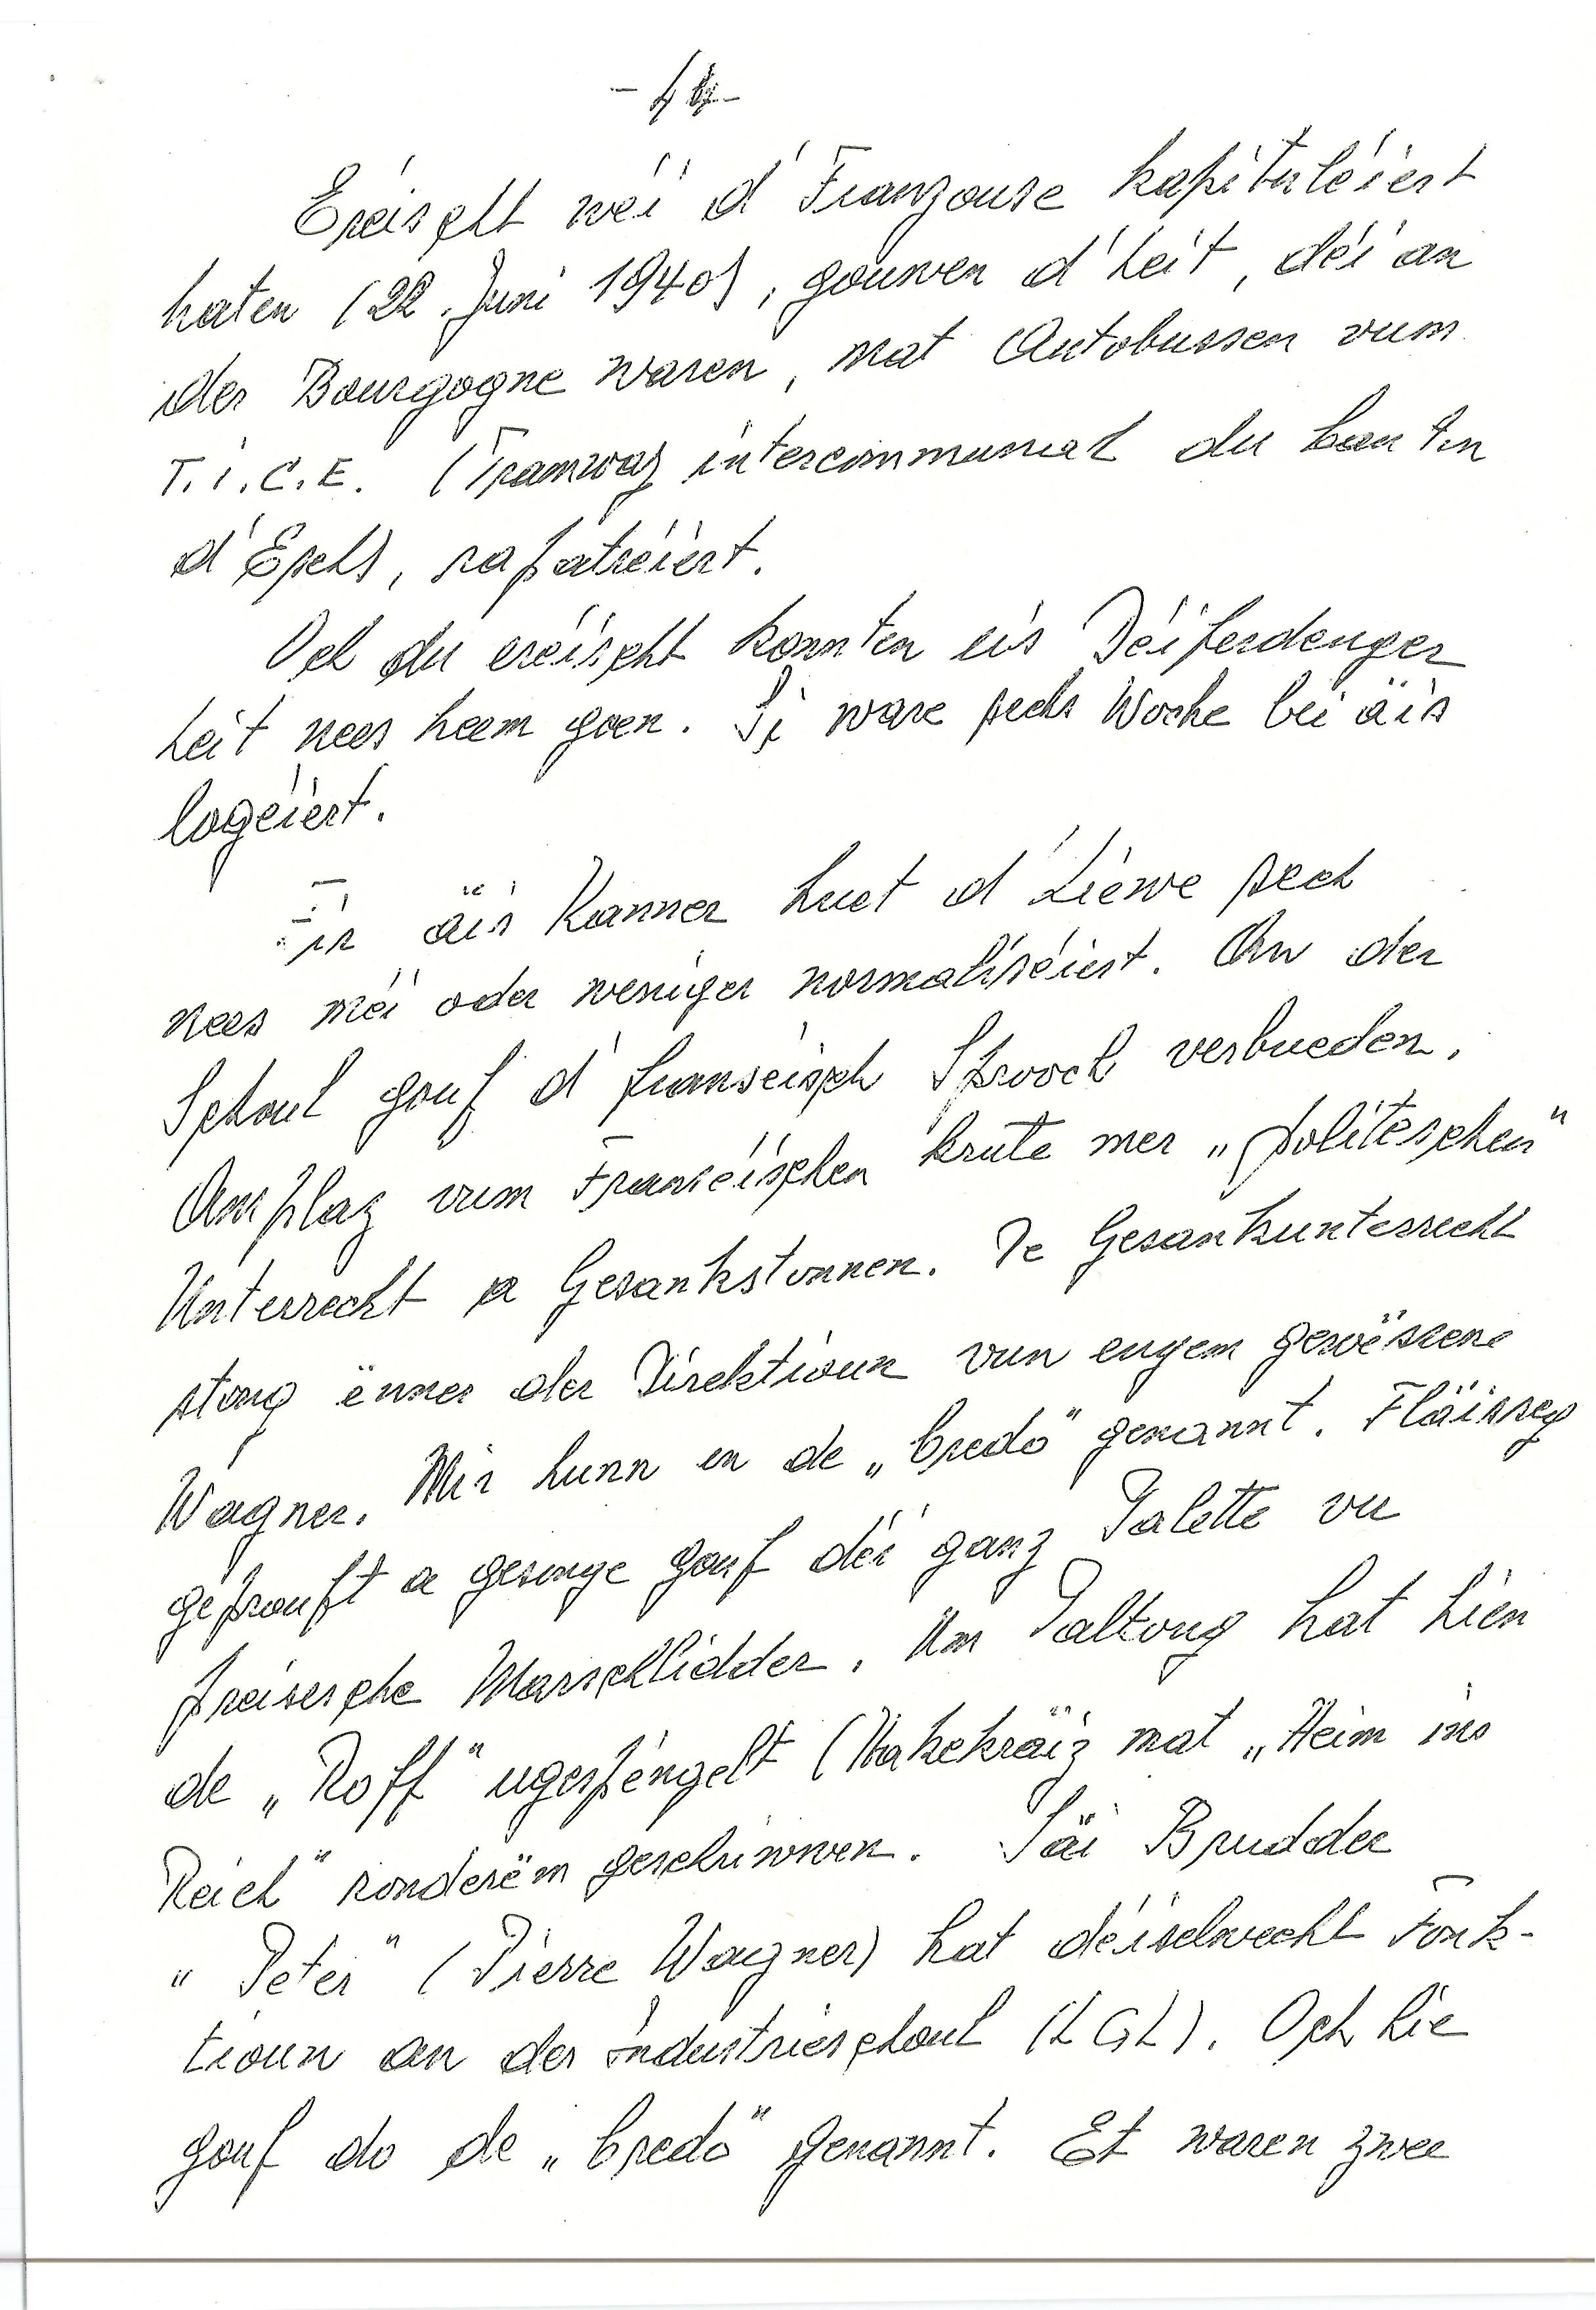 Eréischt wéi d'Franzouse kapituléiert
haten (22. Juni 1940), gouwen d'Leit, déi an
der Bourgogne waren, mat Autobussen vum
T.I.C.E. (Tramway intercommunal du Canton
d'Esch), rapatréiert.
Och du eréischt konnten eis Déiferdenger
Leit nees heem goen. Si ware sechs Woche bei äis
logéiert.
Fir äis Kanner huet d'Liewe sech
nees méi oder weniger normaliséiert. An der
Schoul gouf d'franséisch Sprooch verbueden.
Amplaz vum Franséischen krute mer „politeschen"
Unterrecht a Gesankstonnen. De Gesankunterrecht
stong ënner der Direktioun vun engem gewëssene
Wagner. Mir hunn en de „Credo" genannt. Fläisseg
geprouft a gesonge gouf déi ganz Palette vu
preisesche Marschlidder. Um Paltong hat hien
de „Roff" ugespéngelt (Hakekräiz mat „Heim ins
Reich" ronderëm geschriwwen. Säi Brudder
„Peter" (Pierre Wagner) hat déiselwecht Fonk-
tioun an der Industrieschoul (LGL). Och hie
gouf do de „Credo" genannt. Et waren zwee